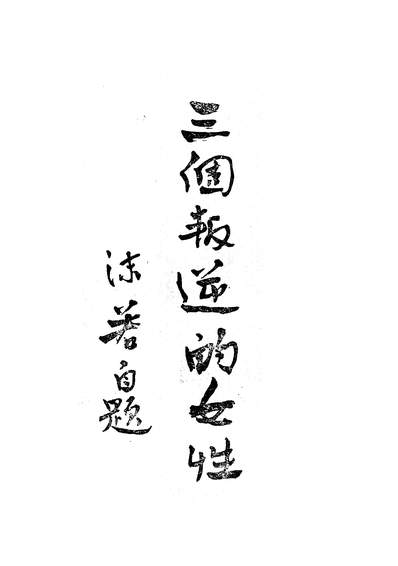 三個叛逆的女性
沫若自題